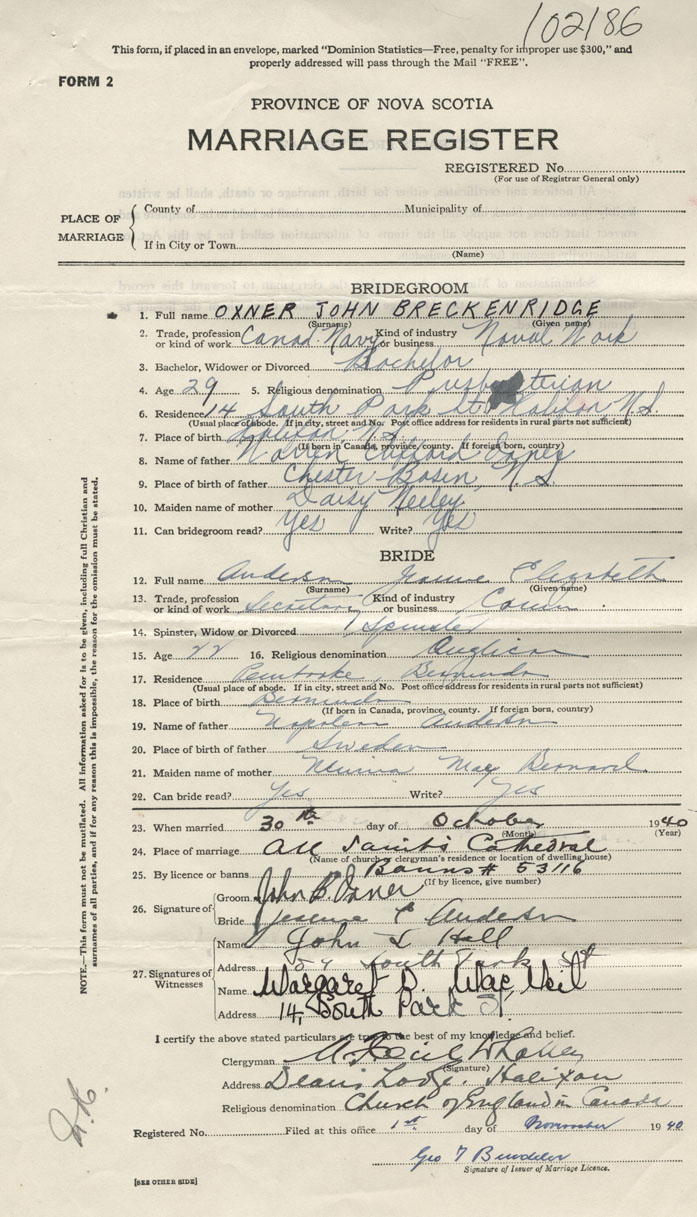 102186
This form, if placed in an envelope, marked "Dominion Statistics—Free, penalty for improper use $300," and
properly addressed will pass through the Mail "FREE".
FORM 2
PROVINCE OF NOVA SCOTIA
MARRIAGE REGISTER
REGISTERED No.
(For use of Registrar General only)
PLACE OF MARRIAGE
County of Municipality of
If in City or Town
(Name)
BRIDEGROOM
1. Full name OXNER JOHN BRECKENRIDGE
(Surname) (Given name)
2. Trade, profession or kind of work Canad. Navy Kind of industry or business Naval Work
3. Bachelor, Widower or Divorced Bachelor
4. Age 29 5. Religious denomination Presbyterian
6. Residence 14 South Park St. Halifax N.S.
(Usual place of abode. If in city, street and No. Post office address for residents in rural parts not sufficient)
7. Place of birth Halifax, N.S.
(If born in Canada, province, county. If foreign born, country)
8. Name of father Warren Clifford Oxner
9. Place of birth of father Chester Basin, N.S.
10. Maiden name of mother Daisy Neeley
11. Can bridegroom read? Yes Write? Yes
BRIDE
12. Full name Anderson Elizabeth
(Surname) (Given name)
13. Trade, profession or kind of work Secretary Kind of industry or business
14. Spinster, Widow or Divorced Spinster
15. Age 22 16. Religious denomination Anglican
17. Residence Pembroke, Bermuda
(Usual place of abode. If in city, street and No. Post office address for residents in rural parts not sufficient)
18. Place of birth Bermuda
(If born in Canada, province, county. If foreign born, country)
19. Name of father Napoleon Anderson
20. Place of birth of father Sweden
21. Maiden name of mother May Bernard
22. Can bride read? Yes Write? Yes
23. When married 30th day of October 1940
(Month) (Year)
24. Place of marriage All Saints Cathedral
(Name of church, clergyman's residence or location of dwelling house)
25. By licence or banns Banns # 53116
(If by licence, give number)
26. Signature of
Groom John B Oxner
Bride E Anderson
27. Signatures of Witnesses
Name John Hill
Address South Park St
Name Margaret D. MacNeil
Address 14, South Park St.
I certify the above stated particulars are true to the best of my knowledge and belief.
Clergyman
(Signature)
Address Deans Lodge, Halifax
Religious denomination Church of England in Canada
Registered No. Filed at this office 1st day of November 1940
Geo
Signature of Issuer of Marriage Licence.
[SEE OTHER SIDE]
NOTE.—This form must not be mutilated. All information asked for is to be given, including full Christian and
surnames of all parties, and if for any reason this is impossible, the reason for the omission must be stated.